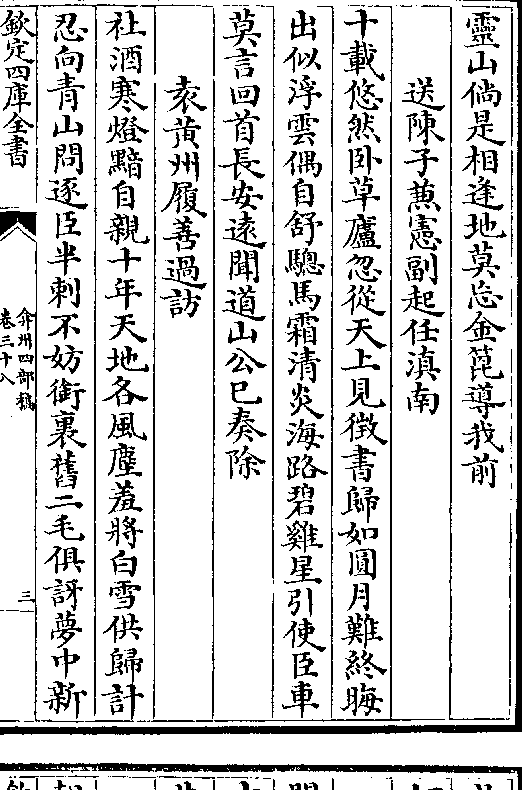 靈山倘是相逢地莫忘金箆導我前
送陳子兼憲副起任滇南
十載悠然卧草廬忽從天上見徴書歸如圓月難終晦
出似浮雲偶自舒驄馬霜清炎海路碧雞星引使臣車
莫言回首長安逺聞道山公已奏除
袁黄州履善過訪
社酒寒燈黯自親十年天地各風塵羞將白雪供歸計
忍向青山問逐臣半刺不妨銜裏舊二毛俱訝夢中新
欽定四庫全書
弇州四部稿
卷三十八
三